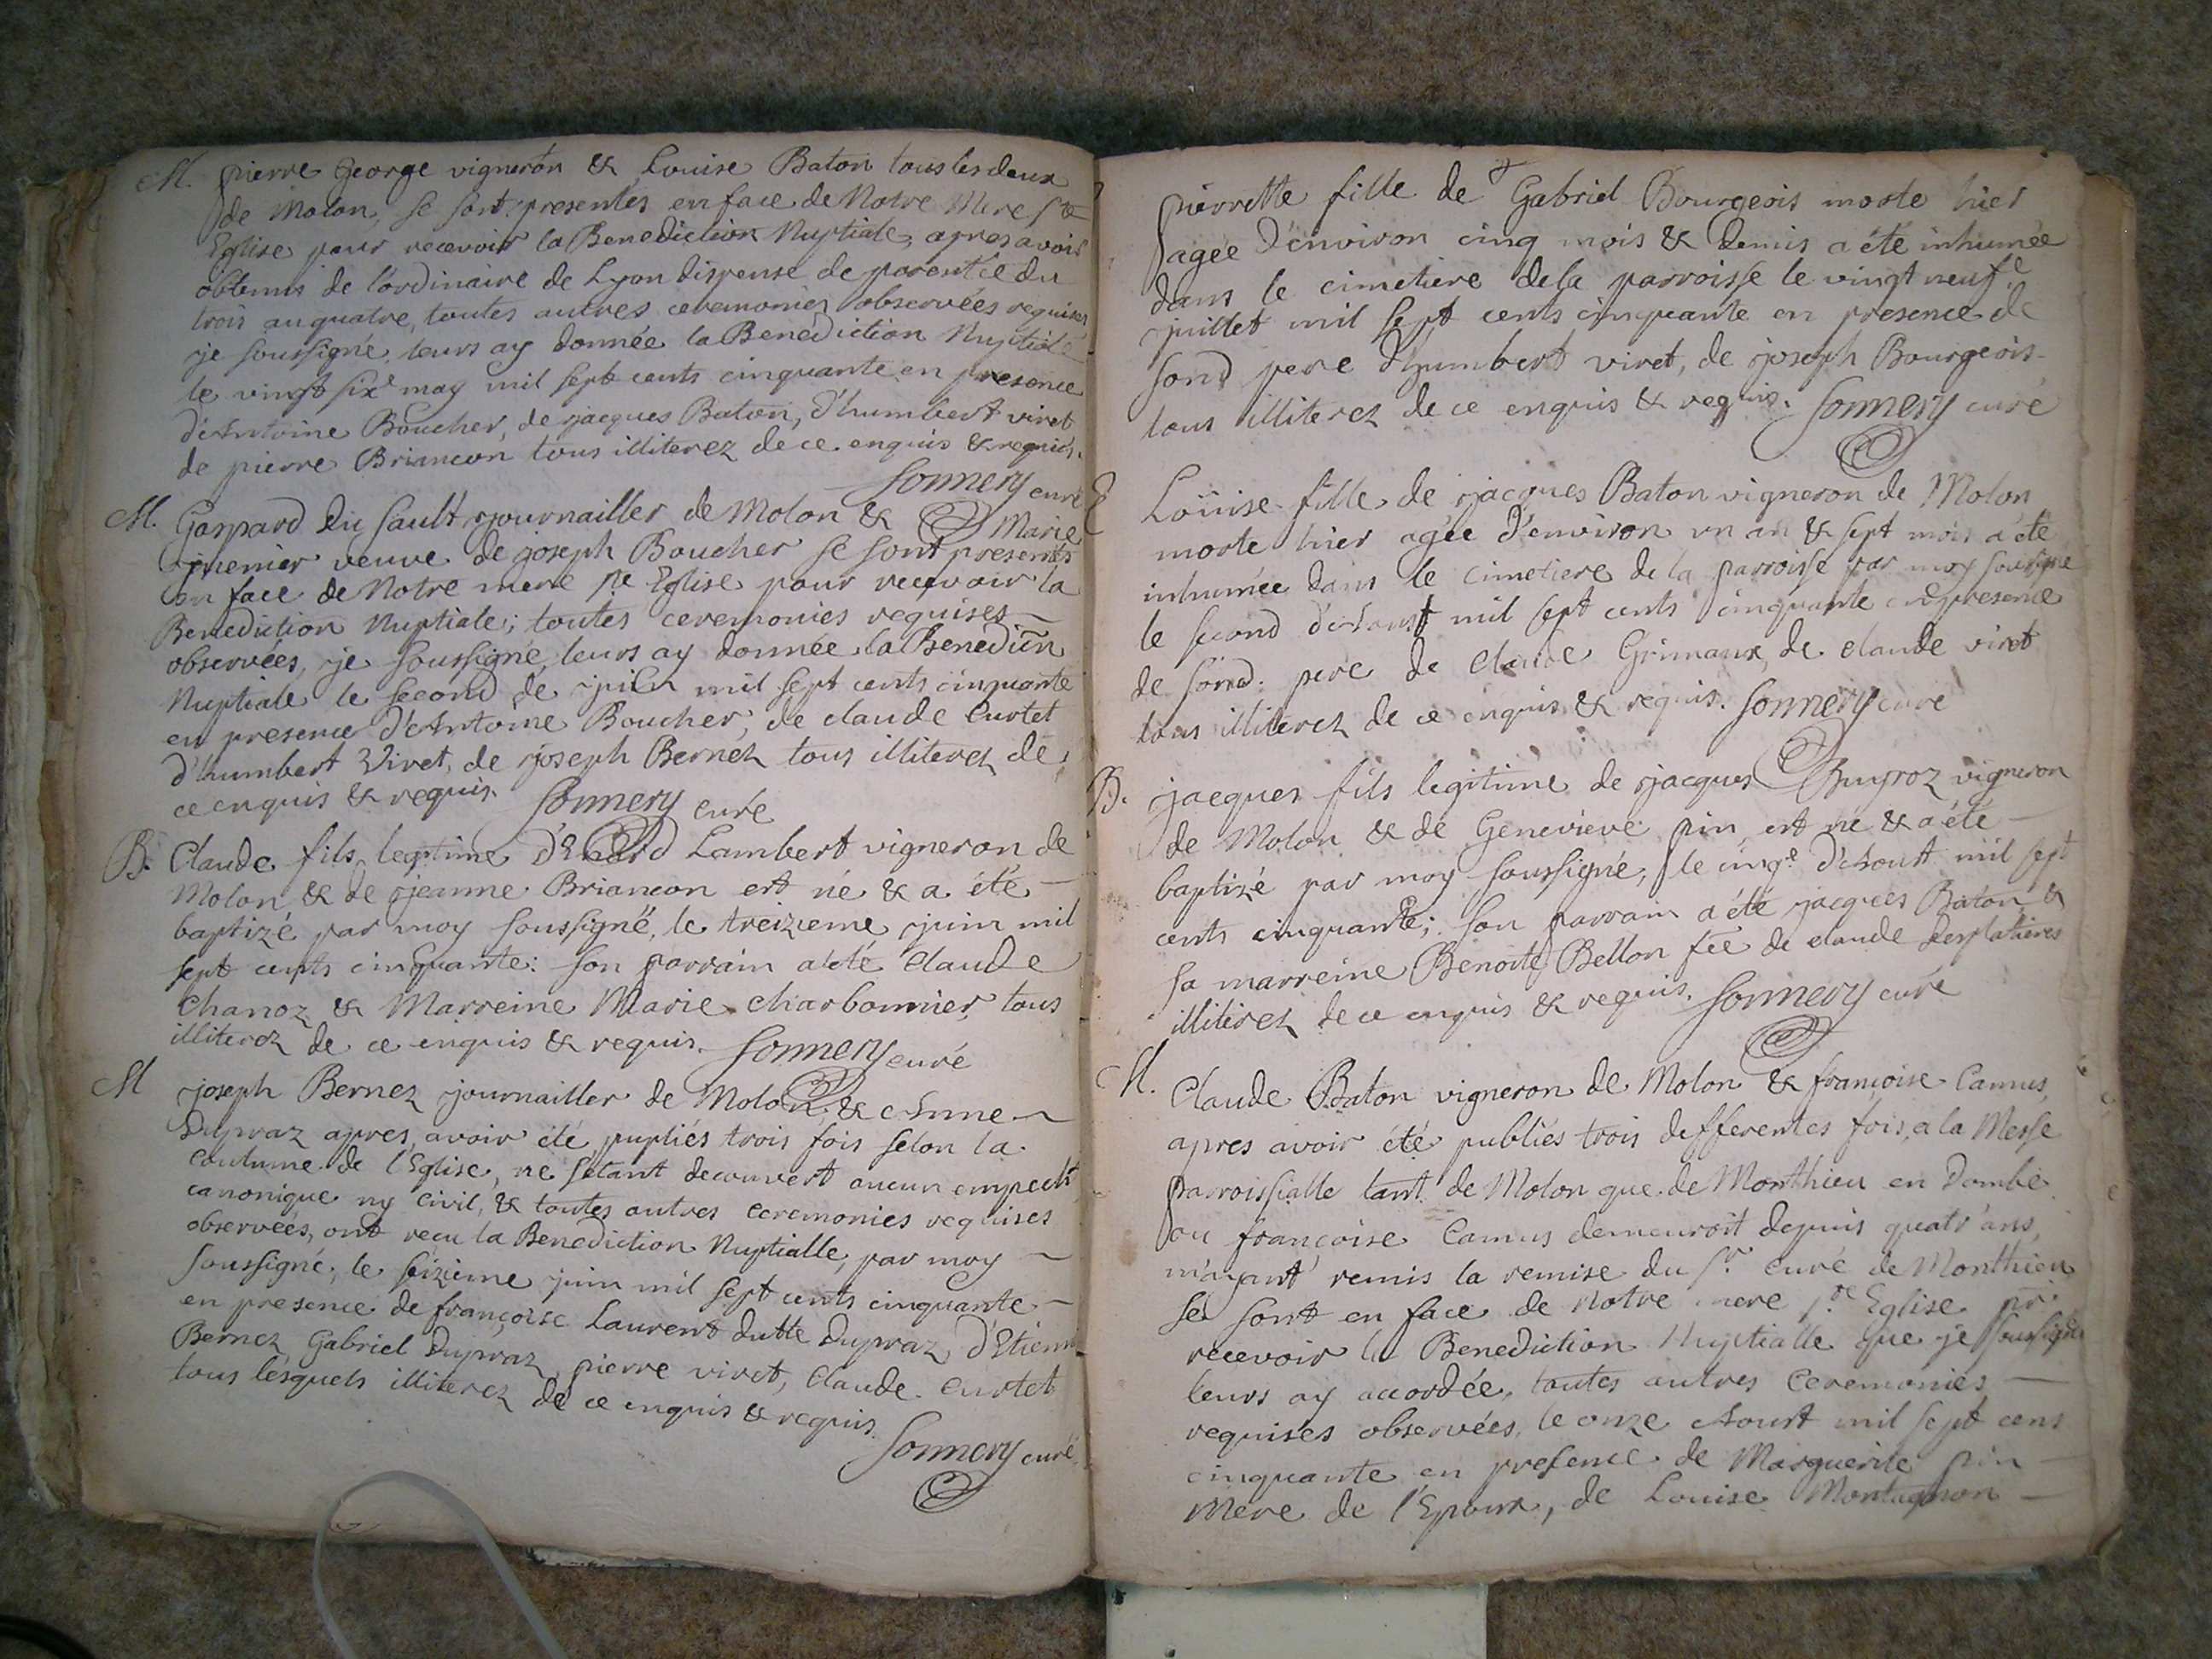 M. pierre george vigneron & Louise Baton tous les deux
de Molon, se sont presentés en face de Notre Mere Ste
Eglise pour recevoir la Benediction Nuptiale, apres avoir
obtenus de l'ordinaire de Lyon dispense de parentée du
trois au quatre, toutes autres ceremonies observées requises
je soussigné, leurs ay donnée la Benediction Nuptiale
le vingt sixe may mil sept cents cinquante en presence
d'Antoine Boucher, de jacques Baton, d'humbert viret
de pierre Briancon tous illiterez de ce enquis & requis.
Sonnery curé
M. Gaspard du Sault journailler de Molon & Marie
premier veuve de joseph Boucher se sont presentés
en face de Notre mere Ste Eglise pour recevoir la
Benediction Nuptiale; toutes ceremonies requises
observées, je soussigné, leurs ay donnée la Benedicñ
Nuptiale le second de juin mil sept cents cinquante
en presence d'Antoine Boucher, de claude Curtet
d'humbert Viret, de joseph Bernez tous illiterez de
ce enquis & requis. Sonnery curé
B. Claude fils legitime Lambert vigneron de
Molon & de jeanne Briancon est né & a été
baptizé par moy soussigné, le treizieme juin mil
sept cents cinquante: son parrain a été Claude
Chanoz & Marreine Marie Charbonnier, tous
illiterez de ce enquis & requis. Sonnery curé
M joseph Bernez journailler de Molon, & Anne
Dupraz apres avoir été pupliés trois fois selon la
coutume de l'Eglise, ne s'étant decouvert aucun empecht
canonique ny civil, & toutes autres ceremonies requises
observées, ont recu la Benediction Nuptialle, par moy
soussigné, le seizieme juin mil sept cents cinquante
en presence de françoise Laurent dutte Dupraz, d'Etienne
Bernez, Gabriel Dupraz, pierre viret, Claude Curtet
tous lesquels illiterez de ce enquis & requis.
Sonnery curé
pierrette fille de Gabriel Bourgeois morte hier
agée d'environ cinq mois & demis a été inhumée
dans le cimetiere de la parroisse le vingt neufe
juillet mil sept cents cinquante en presence de
sond pere d'humbert viret, de joseph Bourgeois
tous illiterez de ce enquis & requis. Sonnery curé
Loüise fille de jacques Baton vigneron de Molon
morte hier agée d'environ un an & sept mois a été
inhumée dans le cimetiere de la parroisse par moy soussigné
le second d'Aoust mil sept cents cinquante en presence
de sond. pere de Claude Grimaux, de claude viret
tous illiterez de ce enquis & requis. Sonnery curé
B. jacques fils legitime de jacques Buyroz vigneron
de Molon & de Genevieve pin est né & a été
baptizé par moy soussigné, le cinqe d'Aoust mil sept
cents cinquante; son parrain a été jacques Baton &
sa marreine Benoite Bellon fée de claude Desplatieres
illiterez de ce enquis & requis. Sonnery curé
M. Claude Baton vigneron de Molon & françoise Camus,
apres avoir été publiés trois defferentes fois, a la Messe
parroissialle tant de Molon que de Monthieu en Dombe
ou françoise Camus demeuroit depuis quatr'ans,
m'ayant remis la remise du Sr. Curé de Monthieu
se sont en face de Notre mere Ste Eglise pr
recevoir la Benediction Nuptialle que je soussigné
leurs ay accordée, toutes autres Ceremonies
requises observées, le onze Aoust mil sept cens
cinquante en presence de Marguerite pin
Mere de l'Epoux, de Louise Montagnon